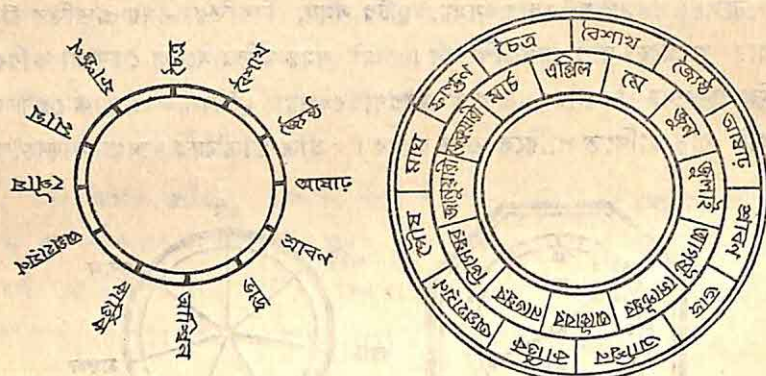 চৈত্র
বৈশাখ
জ্যৈষ্ঠ
আষাঢ়
শ্রাবণ
ভাদ্র
আশ্বিন
কার্তিক
অগ্রহায়ন
পৌষ
মাঘ
ফাল্গুন
চৈত্র
বৈশাখ
জ্যৈষ্ঠ
আষাঢ়
শ্রাবন
ভাদ্র
আশ্বিন
কার্তিক
অগ্রহায়ন
পৌষ
মাঘ
ফাল্গুন
মার্চ
এপ্রিল
মে
জুন
জুলাই
আগস্ট
সেপ্টেম্বর
অক্টোবর
নভেম্বর
ডিসেম্বর
জানুয়ারী
ফেব্রুয়ারী